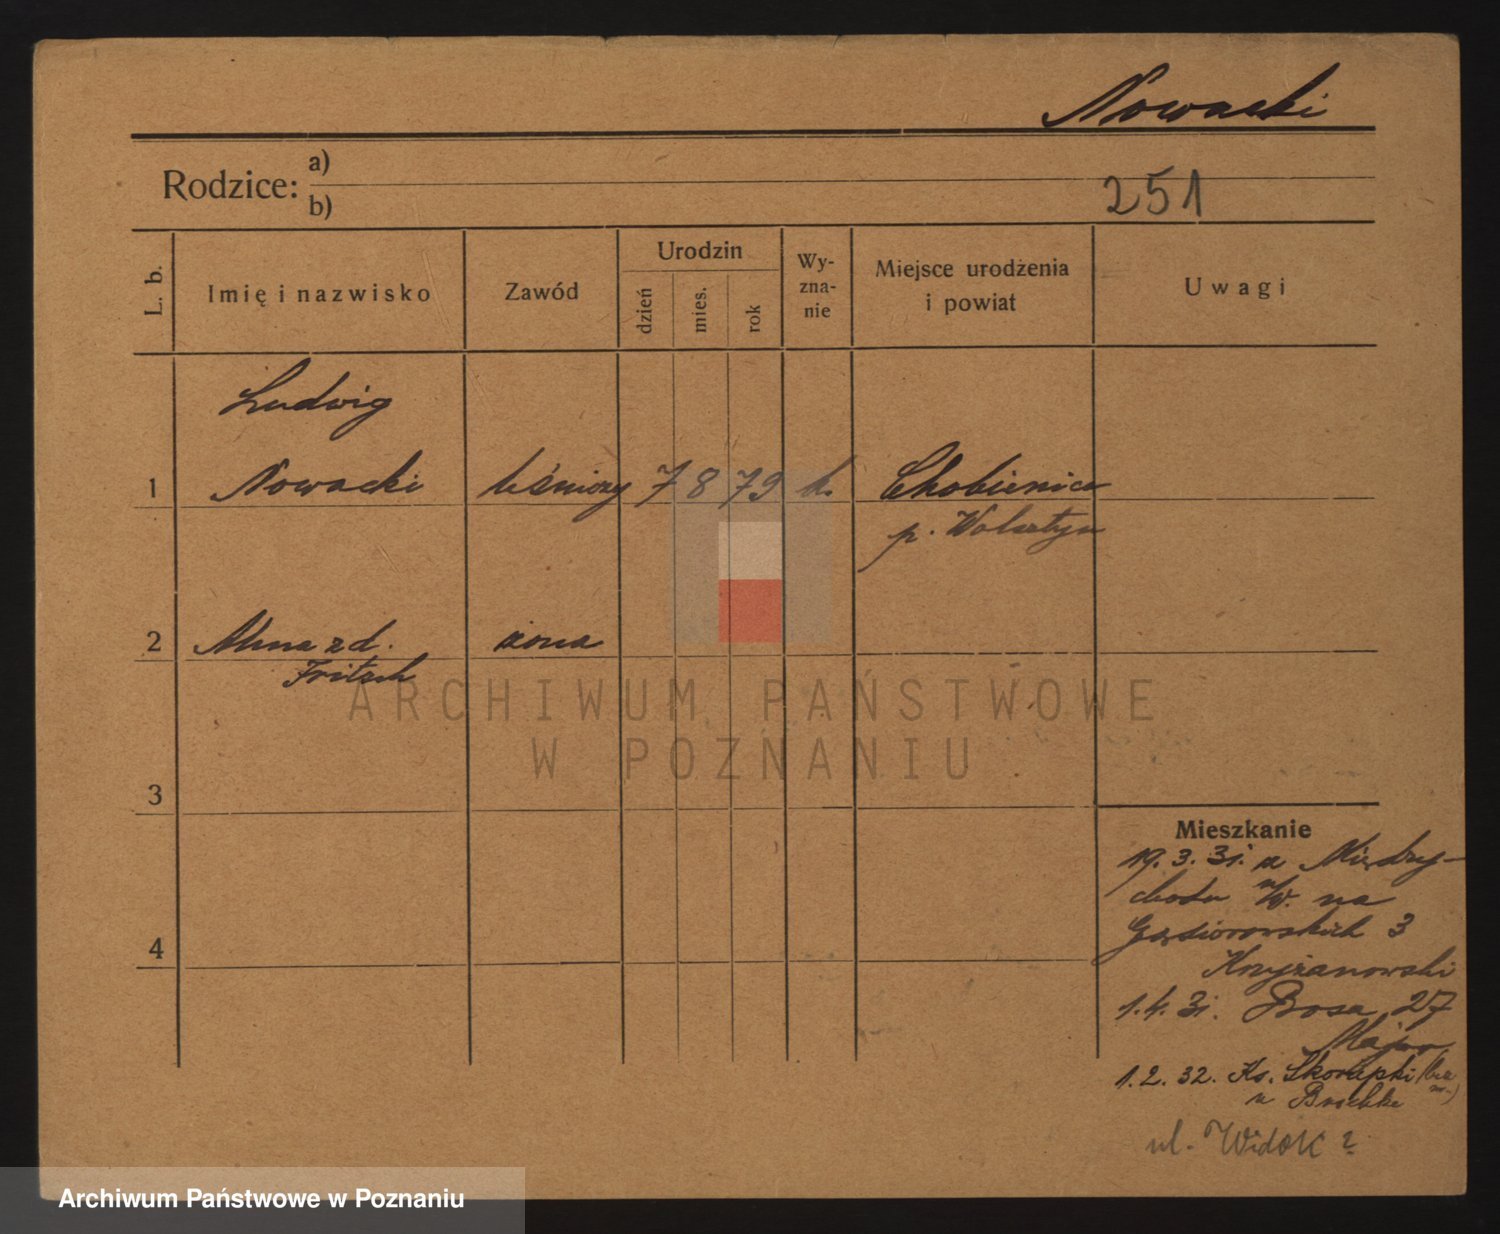 Nowacki
Rodzice: a)
b)
251
L. b.
Imię i nazwisko
Zawód
Urodzin
dzień
mies.
rok
Wy-
zna-
nie
Miejsce urodżenia
i powiat
Uwagi
Ludwig
1 Nowacki leśniczy 7 8 79 k. Chobienice
p. Wolsztyn
2 Alma zd. żona
Fritsch
ARCHIWUM PAŃSTWOWE
W POZNANIU
3
Mieszkanie
19.3.31. z Między-
chodu n/W. na
4 Gąsiorowskich 3
Krzyżanowski
1.4.31. Bosa 27
Major
1.2.32. Ks. Skorupki
u
ul. Widok 2
Archiwum Państwowe w Poznaniu